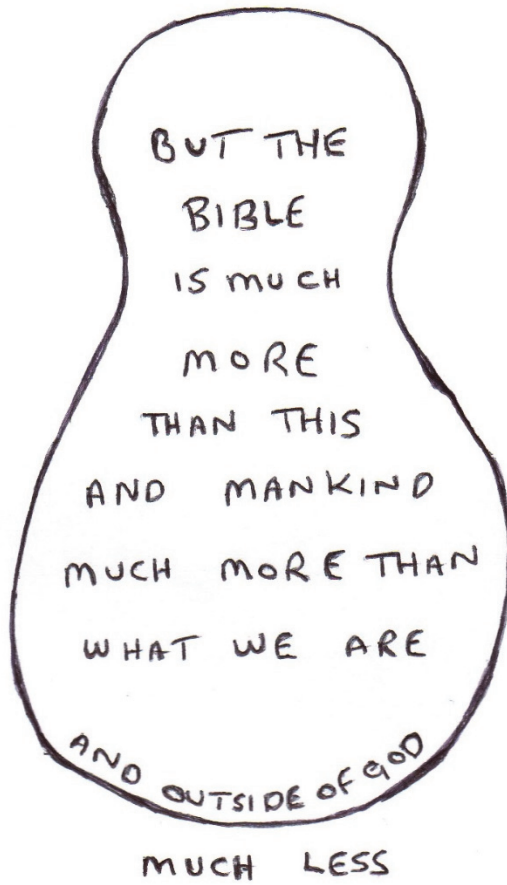 BUT THE
BIBLE
IS MUCH
MORE
THAN THIS
AND MANKIND
MUCH MORE THAN
WHAT WE ARE
AND OUTSIDE OF GOD
MUCH LESS